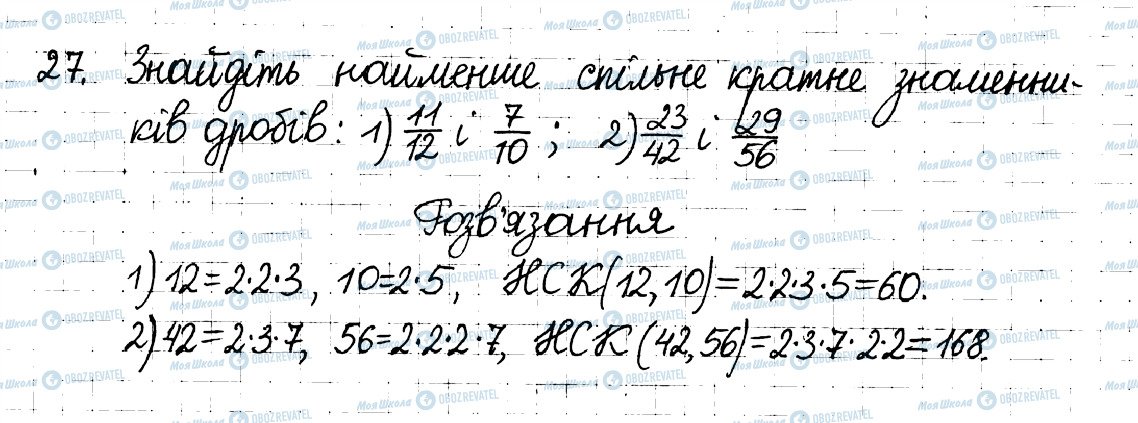 27. Знайдіть найменше спільне кратне знаменни-
ків дробів: 1) 11/12 і 7/10; 2) 23/42 і 29/56
Розв'язання
1) 12=2·2·3, 10=2·5, НСК(12,10)=2·2·3·5=60.
2) 42=2·3·7, 56=2·2·2·7, НСК(42,56)=2·3·7·2·2=168.